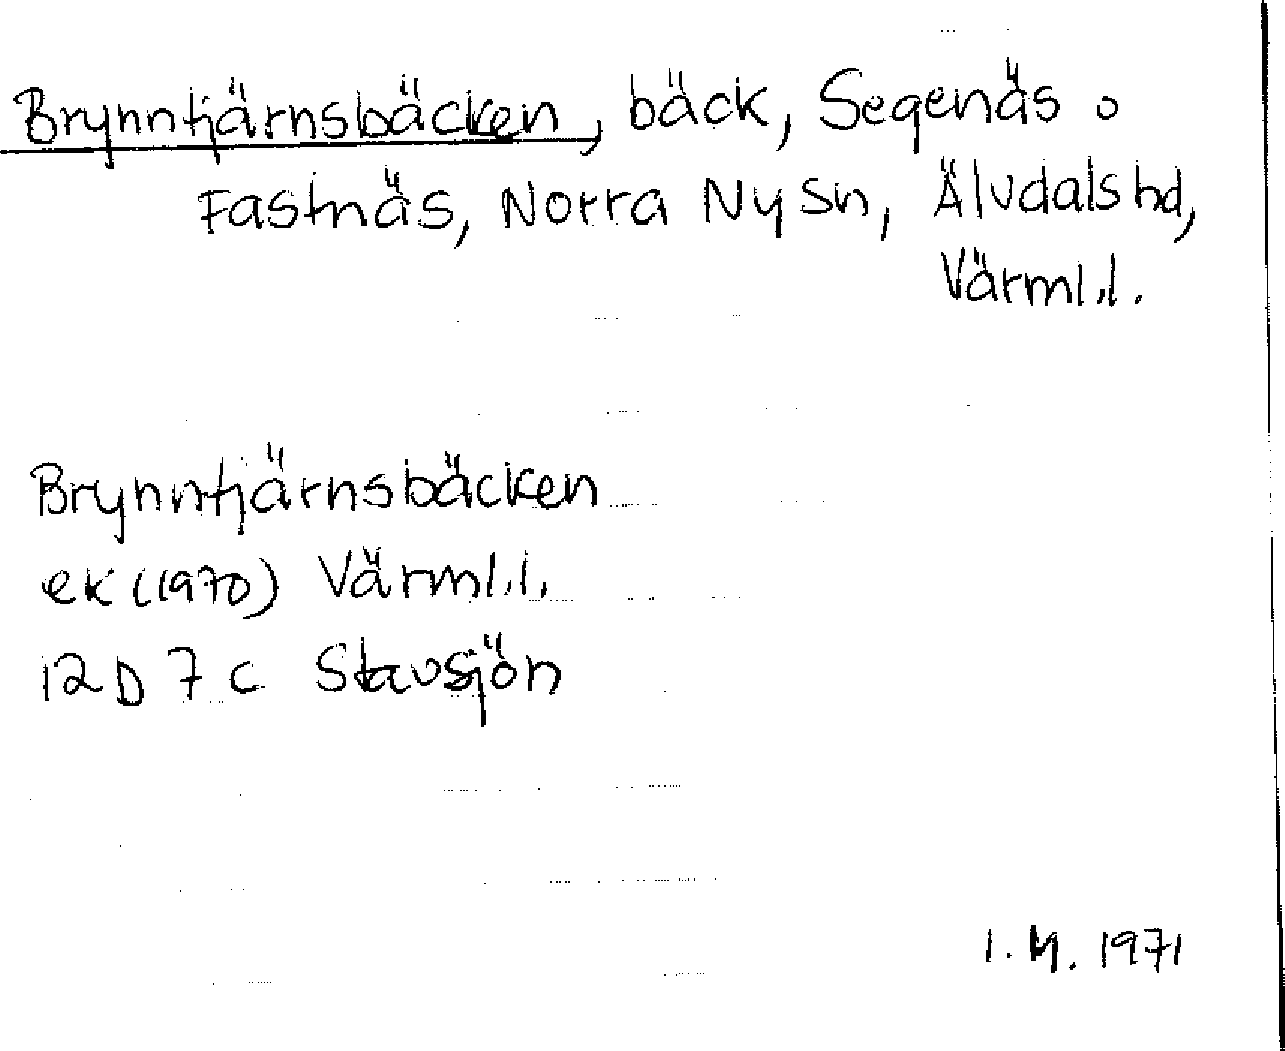 Brynntjärnsbäcken, bäck, Segenäs o
Fastnäs, Norra Ny sn, Älvdals hd,
Värml.l.
Brynntjärnsbäcken
ek (1970) Värml.l.
12D 7 c Stavsjön
I.M. 1971